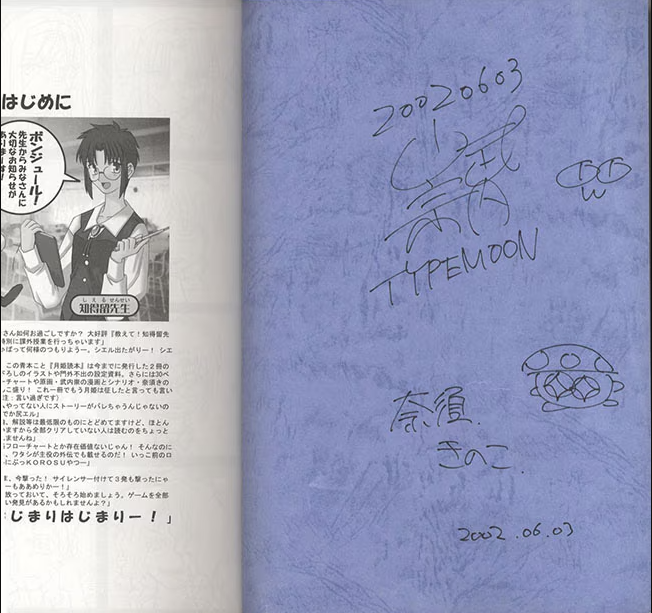 はじめに
ボンジュール!
先生からみなさんに
大切なお知らせが
あります!
しえるせんせい
知得留先生
さん如何お過ごしですか? 大好評『教えて!知得留先
特別に課外授業を行っちゃいます」
ゃぱって何様のつもりよーう。シエル出たがりー! シエ
この青本こと『月姫読本』は今までに発行した2冊の
ろしのイラストや門外不出の設定資料、さらには30ペ
ーチャートや原画・武内崇の漫画とシナリオ・奈須きの
こ盛り! これ一冊でもう月姫は征したと言っても言い
注:言い過ぎです)
ゃやってない人にストーリーがバレちゃうんじゃないの
でか尻エル」
、解説等は最低限のものにとどめてますけど、ほとん
いますから全部クリアしていない人は読むのをちょっと
ませんね」
フローチャートとか存在価値ないじゃん! そんなのに
、ワタシが主役の外伝でも載せるのだ! いっこ前のロ
にぶっKOROSUやつー」
ま、今撃った! サイレンサー付けて3発も撃ったにゃ
ーもああめりかー!」
放っておいて、そろそろ始めましょう。ゲームを全部
い発見があるかもしれませんよ?」
じまりはじまりー!」
20020603
TYPEMOON
奈須
きのこ
2002.06.03